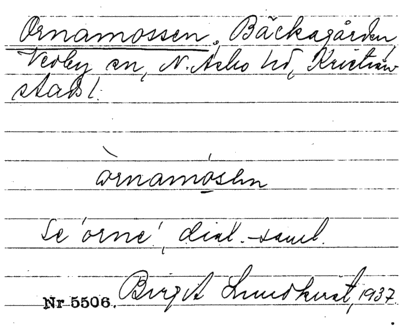 Ornamossen, Bäckagården,
Vedby sn, N. Åsbo hd, Kristian
stads l.
òrnamósln
Se 'orne', dial.-saml.
Nr 5506. Birgit Lundkvist, 1937